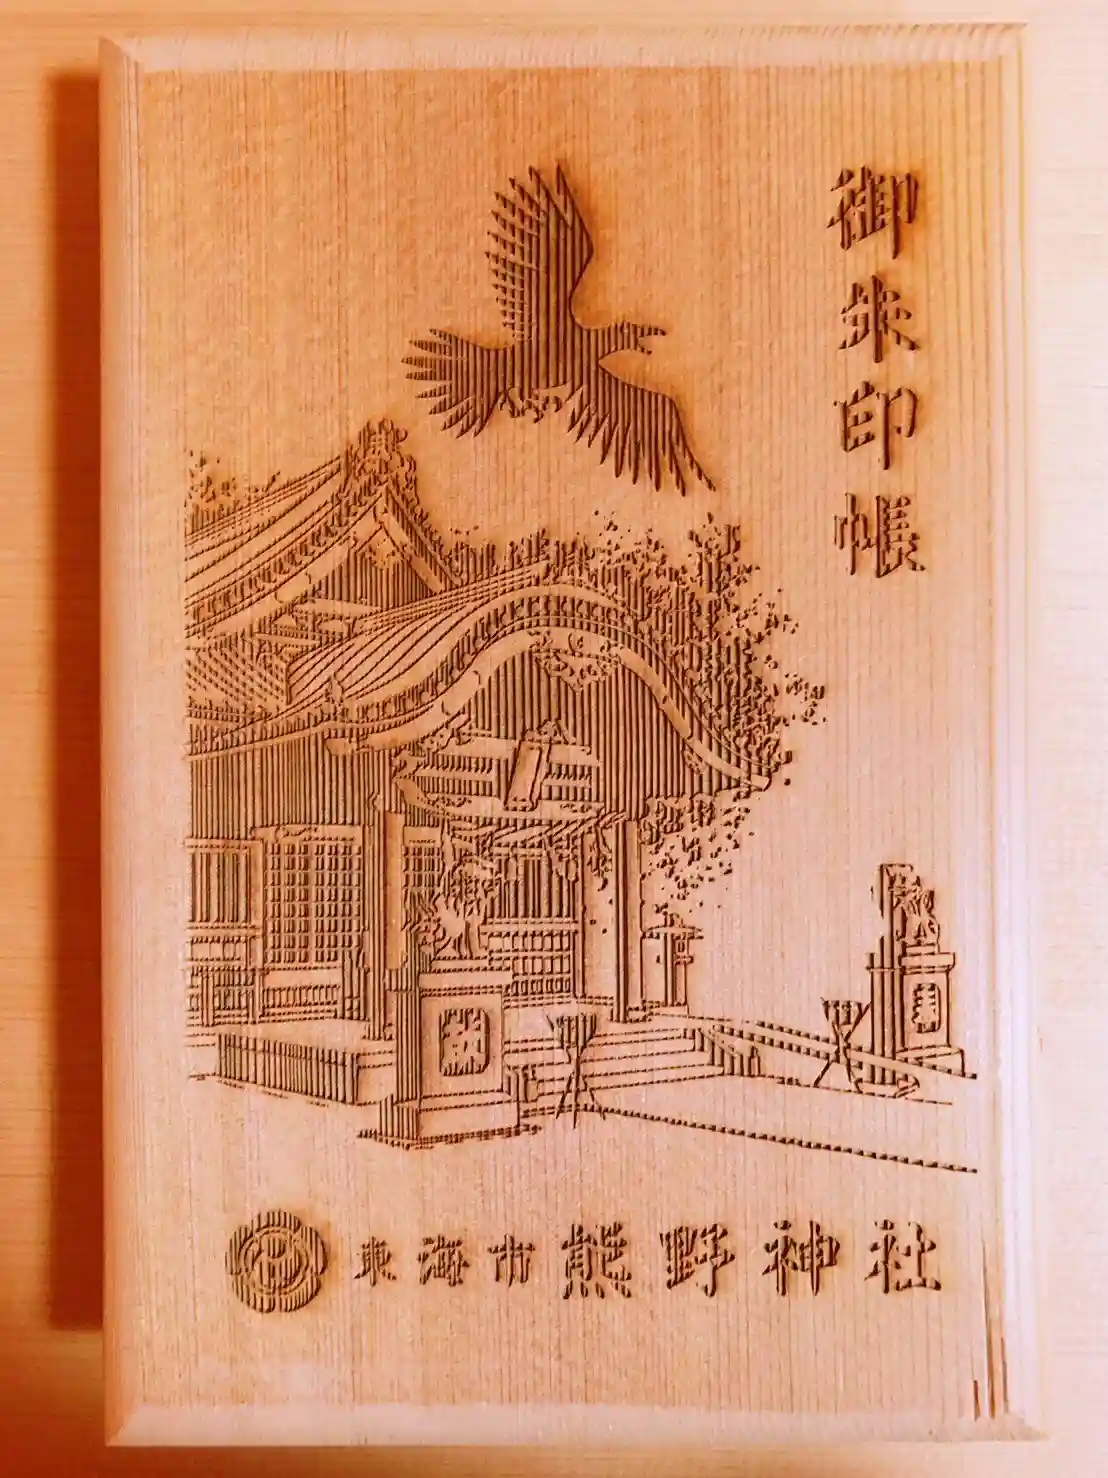 御朱印帳
東海市熊野神社